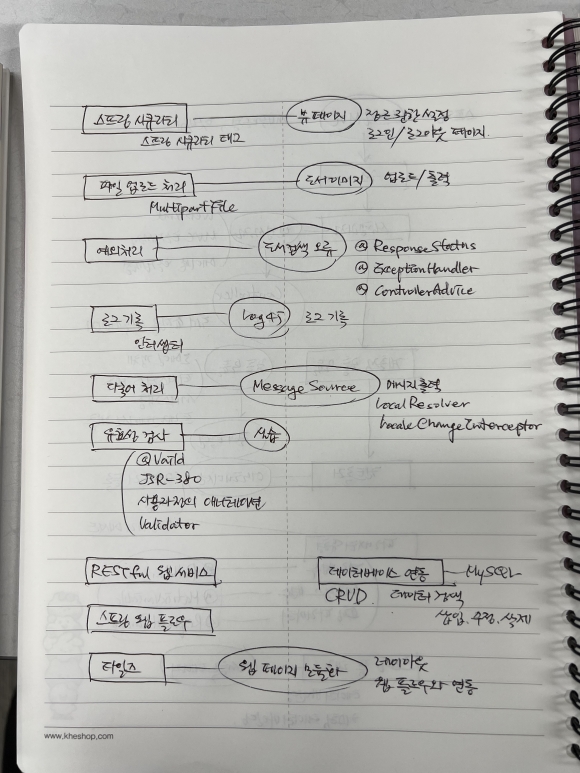 스프링 시큐리티 뷰 페이지 접근 권한 설정
스프링 시큐리티 태그 로그인/로그아웃 페이지.
파일 업로드 처리 도서이미지 업로드/출력
Multipart File
예외처리 도서검색 오류 @ ResponseStatus
@ ExceptionHandler
@ ControllerAdvice
로그 기록 Log4j 로그 기록
인터셉터
다국어 처리 Message Source 메시지 출력
LocalResolver
Locale Change Interceptor
유효성 검사 실습
@Vaild
JSR-380
사용자정의 애너테이션
Validator
RESTful 웹 서비스 데이터베이스 연동 MySQL
CRUD. 데이터 검색
스프링 웹 플로우 삽입.수정.삭제
타일즈 웹 페이지 모듈화 레이아웃
웹 플로우와 연동
www.kheshop.com